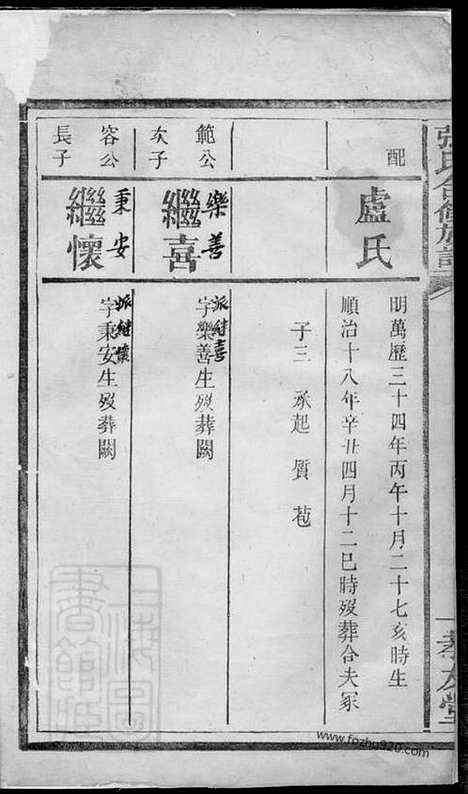 張氏合修族譜
孝友堂
配
盧氏
明萬歷三十四年丙午十月二十七亥時生
順治十八年辛丑四月十二巳時歿葬合夫冢
子三 承起 質 苞
範公
次子
樂善
繼喜
派継喜
字樂善生歿葬闕
容公
長子
秉安
繼懷
派継懷
字秉安生歿葬闕
上海圖書館藏
www.fozhu920.com